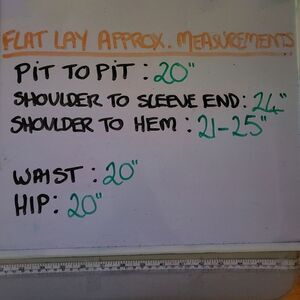 FLAT LAY APPROX. MEASUREMENTS
PIT TO PIT : 20"
SHOULDER TO SLEEVE END: 24"
SHOULDER TO HEM : 21-25"
WAIST : 20"
HIP: 20"